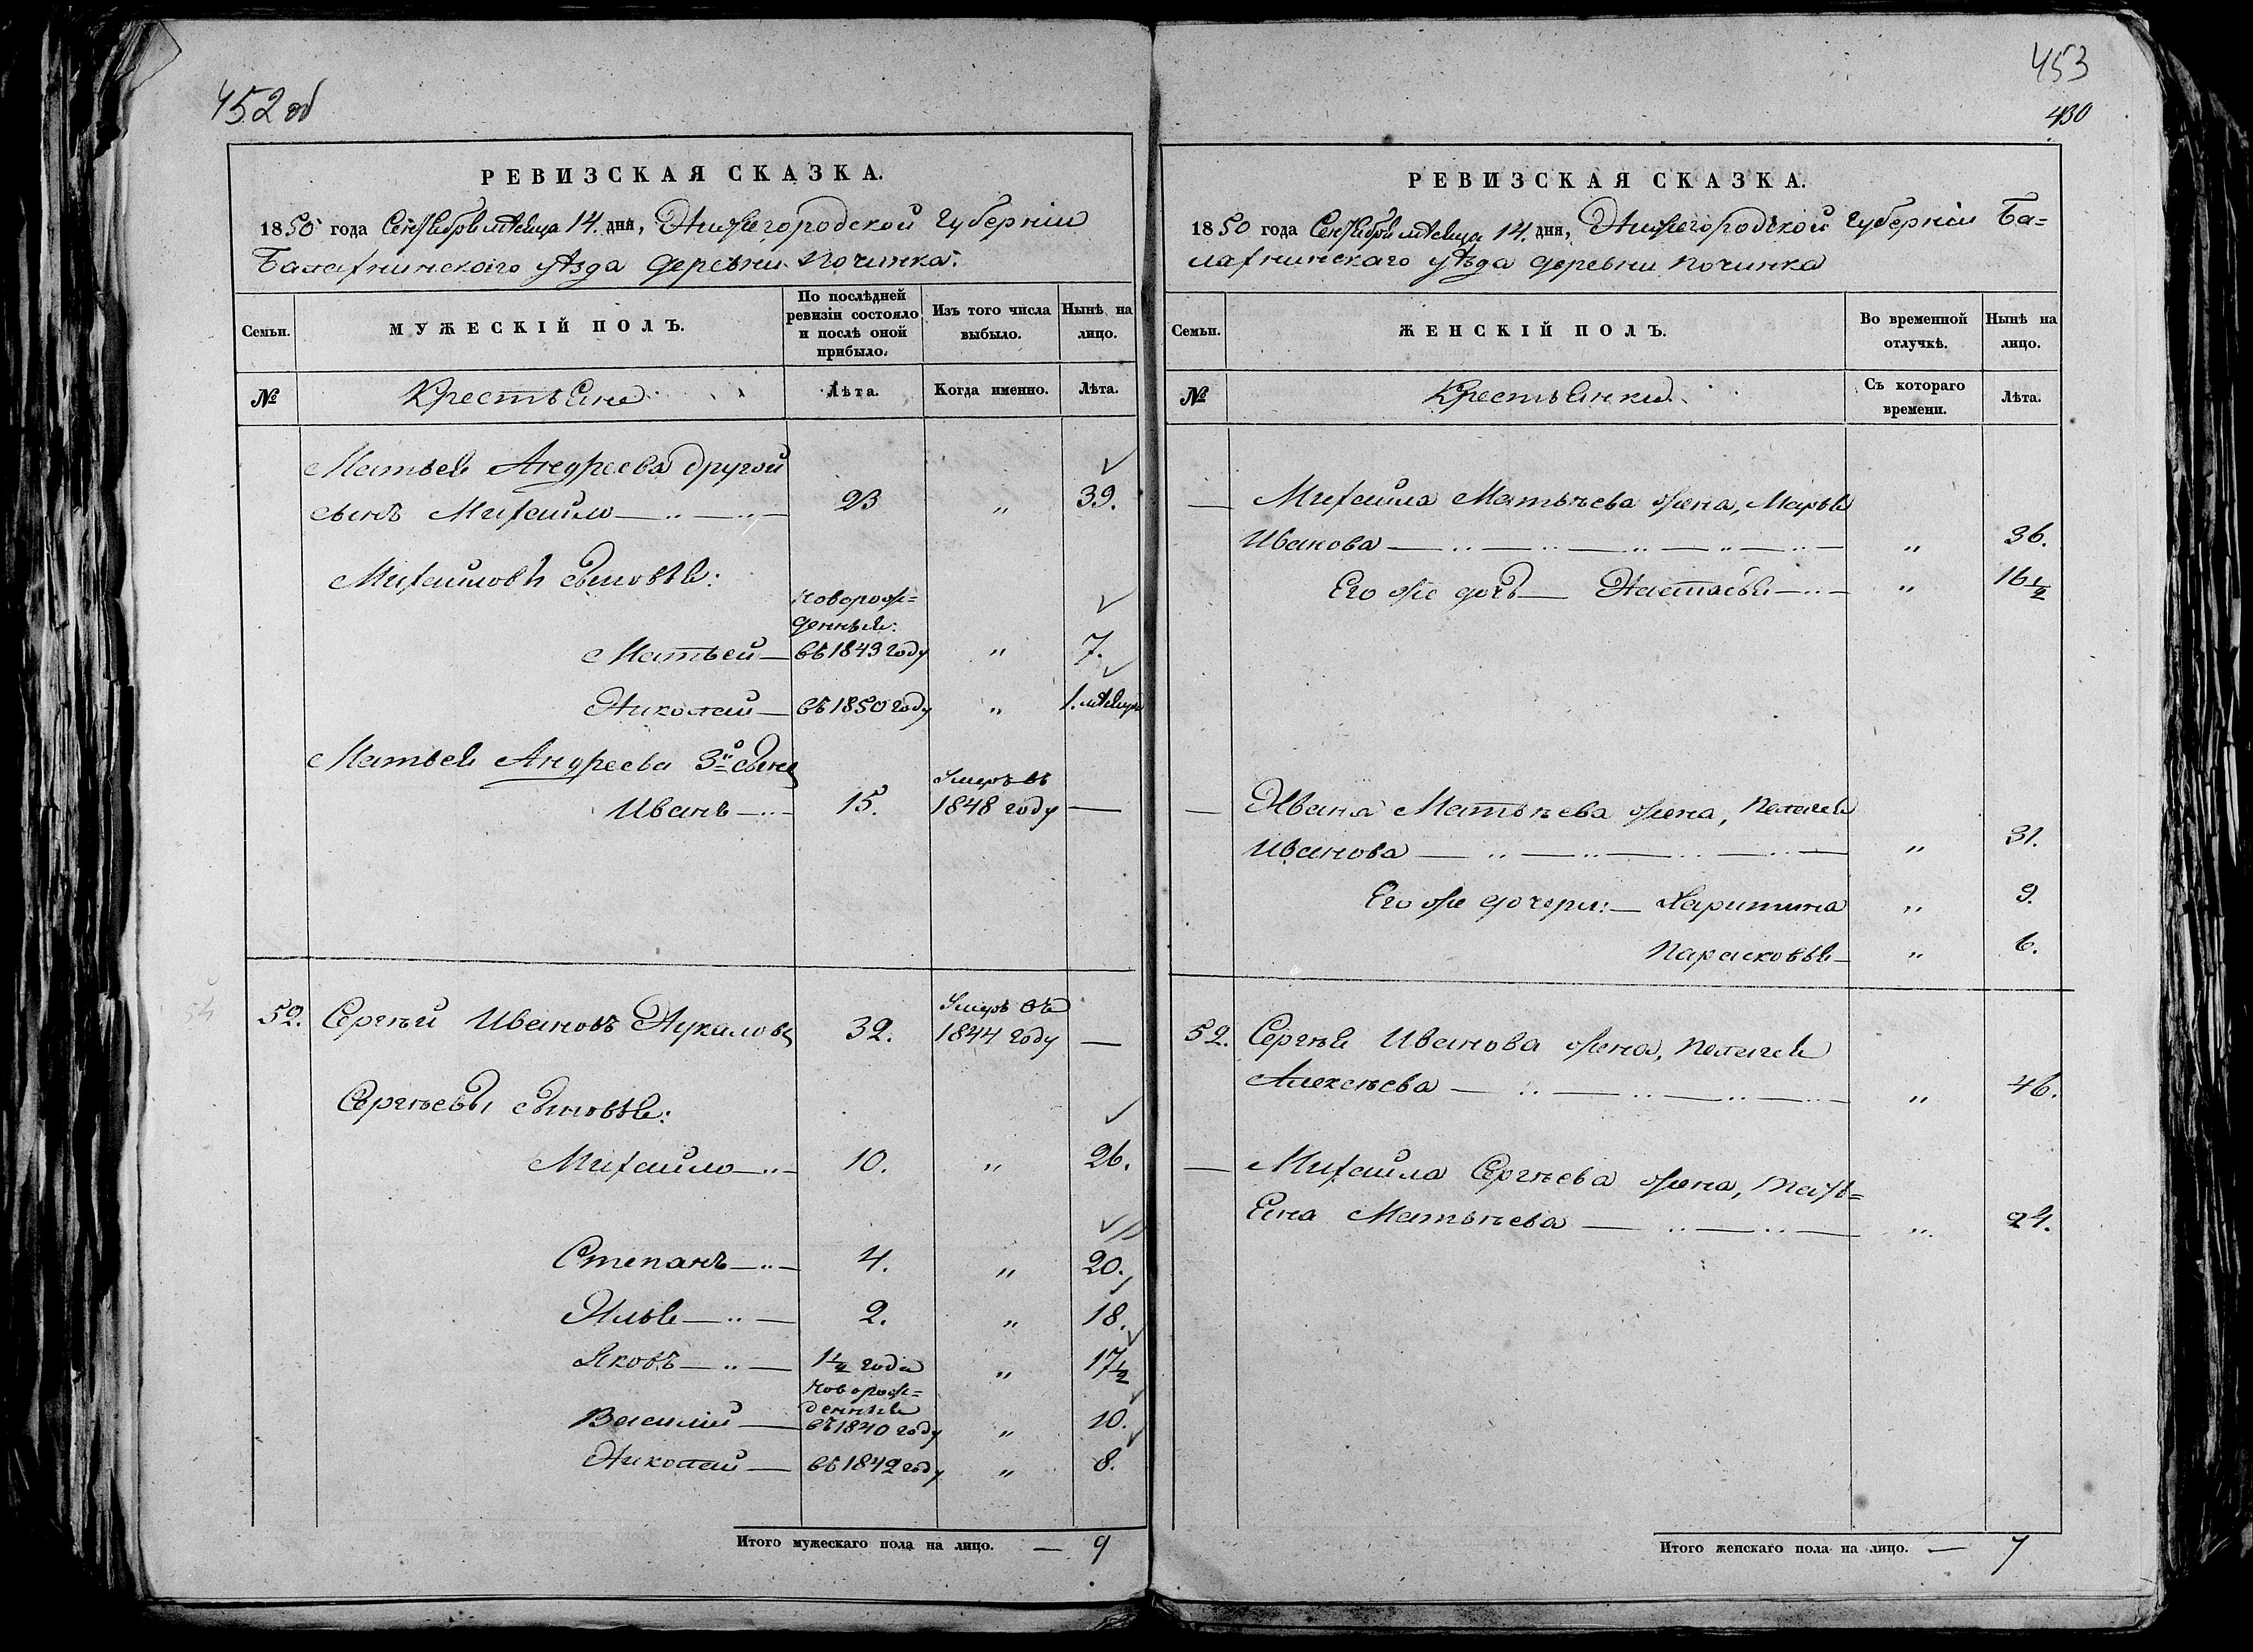 452 об
РЕВИЗСКАЯ СКАЗКА.
1850 года Сентября мѣсяца 14. дня, Нижегородской Губерніи
Балахнинскаго уѣзда деревни Починка.
Семьи.
МУЖЕСКІЙ ПОЛЪ.
По послѣдней ревизіи состояло и послѣ оной прибыло.
Изъ того числа выбыло.
Нынѣ на лицо.
№
Крестьяне
Лѣта.
Когда именно.
Лѣта.
Матвея Андреева другой
сынъ Михайло 23 „ 39.
Михайловы сыновья:
Новорож=
денные:
Матвей въ 1843 году „ 7.
Николай въ 1850 году „ 1. мѣсяцъ
Матвея Андреева 3й сынъ
Иванъ 15. Умеръ въ 1848 году —
52. Сергѣй Ивановъ 32. Умеръ въ 1844 году —
Сергѣевы сыновья:
Михайло 10. „ 26.
Степанъ 4. „ 20.
Илья 2. „ 18.
Яковъ 1½ года „ 17½
Новорож=
денные
Василій въ 1840 году „ 10.
Николай въ 1842 году „ 8.
Итого мужескаго пола на лицо. — 9
453
430
РЕВИЗСКАЯ СКАЗКА.
1850 года Сентября мѣсяца 14. дня, Нижегородской Губерніи Ба=
лахнинскаго уѣзда деревни Починка
Семьи.
ЖЕНСКІЙ ПОЛЪ.
Во временной отлучкѣ.
Нынѣ на лицо.
№
Крестьянки.
Съ котораго времени.
Лѣта.
— Михайла Матвѣева жена, Марья
Иванова „ 36.
Его же дочь Настасья „ 16½
— Ивана Матвѣева жена, Пелагея
Иванова „ 31.
Его же дочери: Харитина „ 9.
Парасковья „ 6.
52. Сергѣя Иванова жена, Пелагея
Алексѣева „ 46.
— Михайла Сергѣева жена, Тать=
яна Матвѣева „ 24.
Итого женскаго пола на лицо. — 7